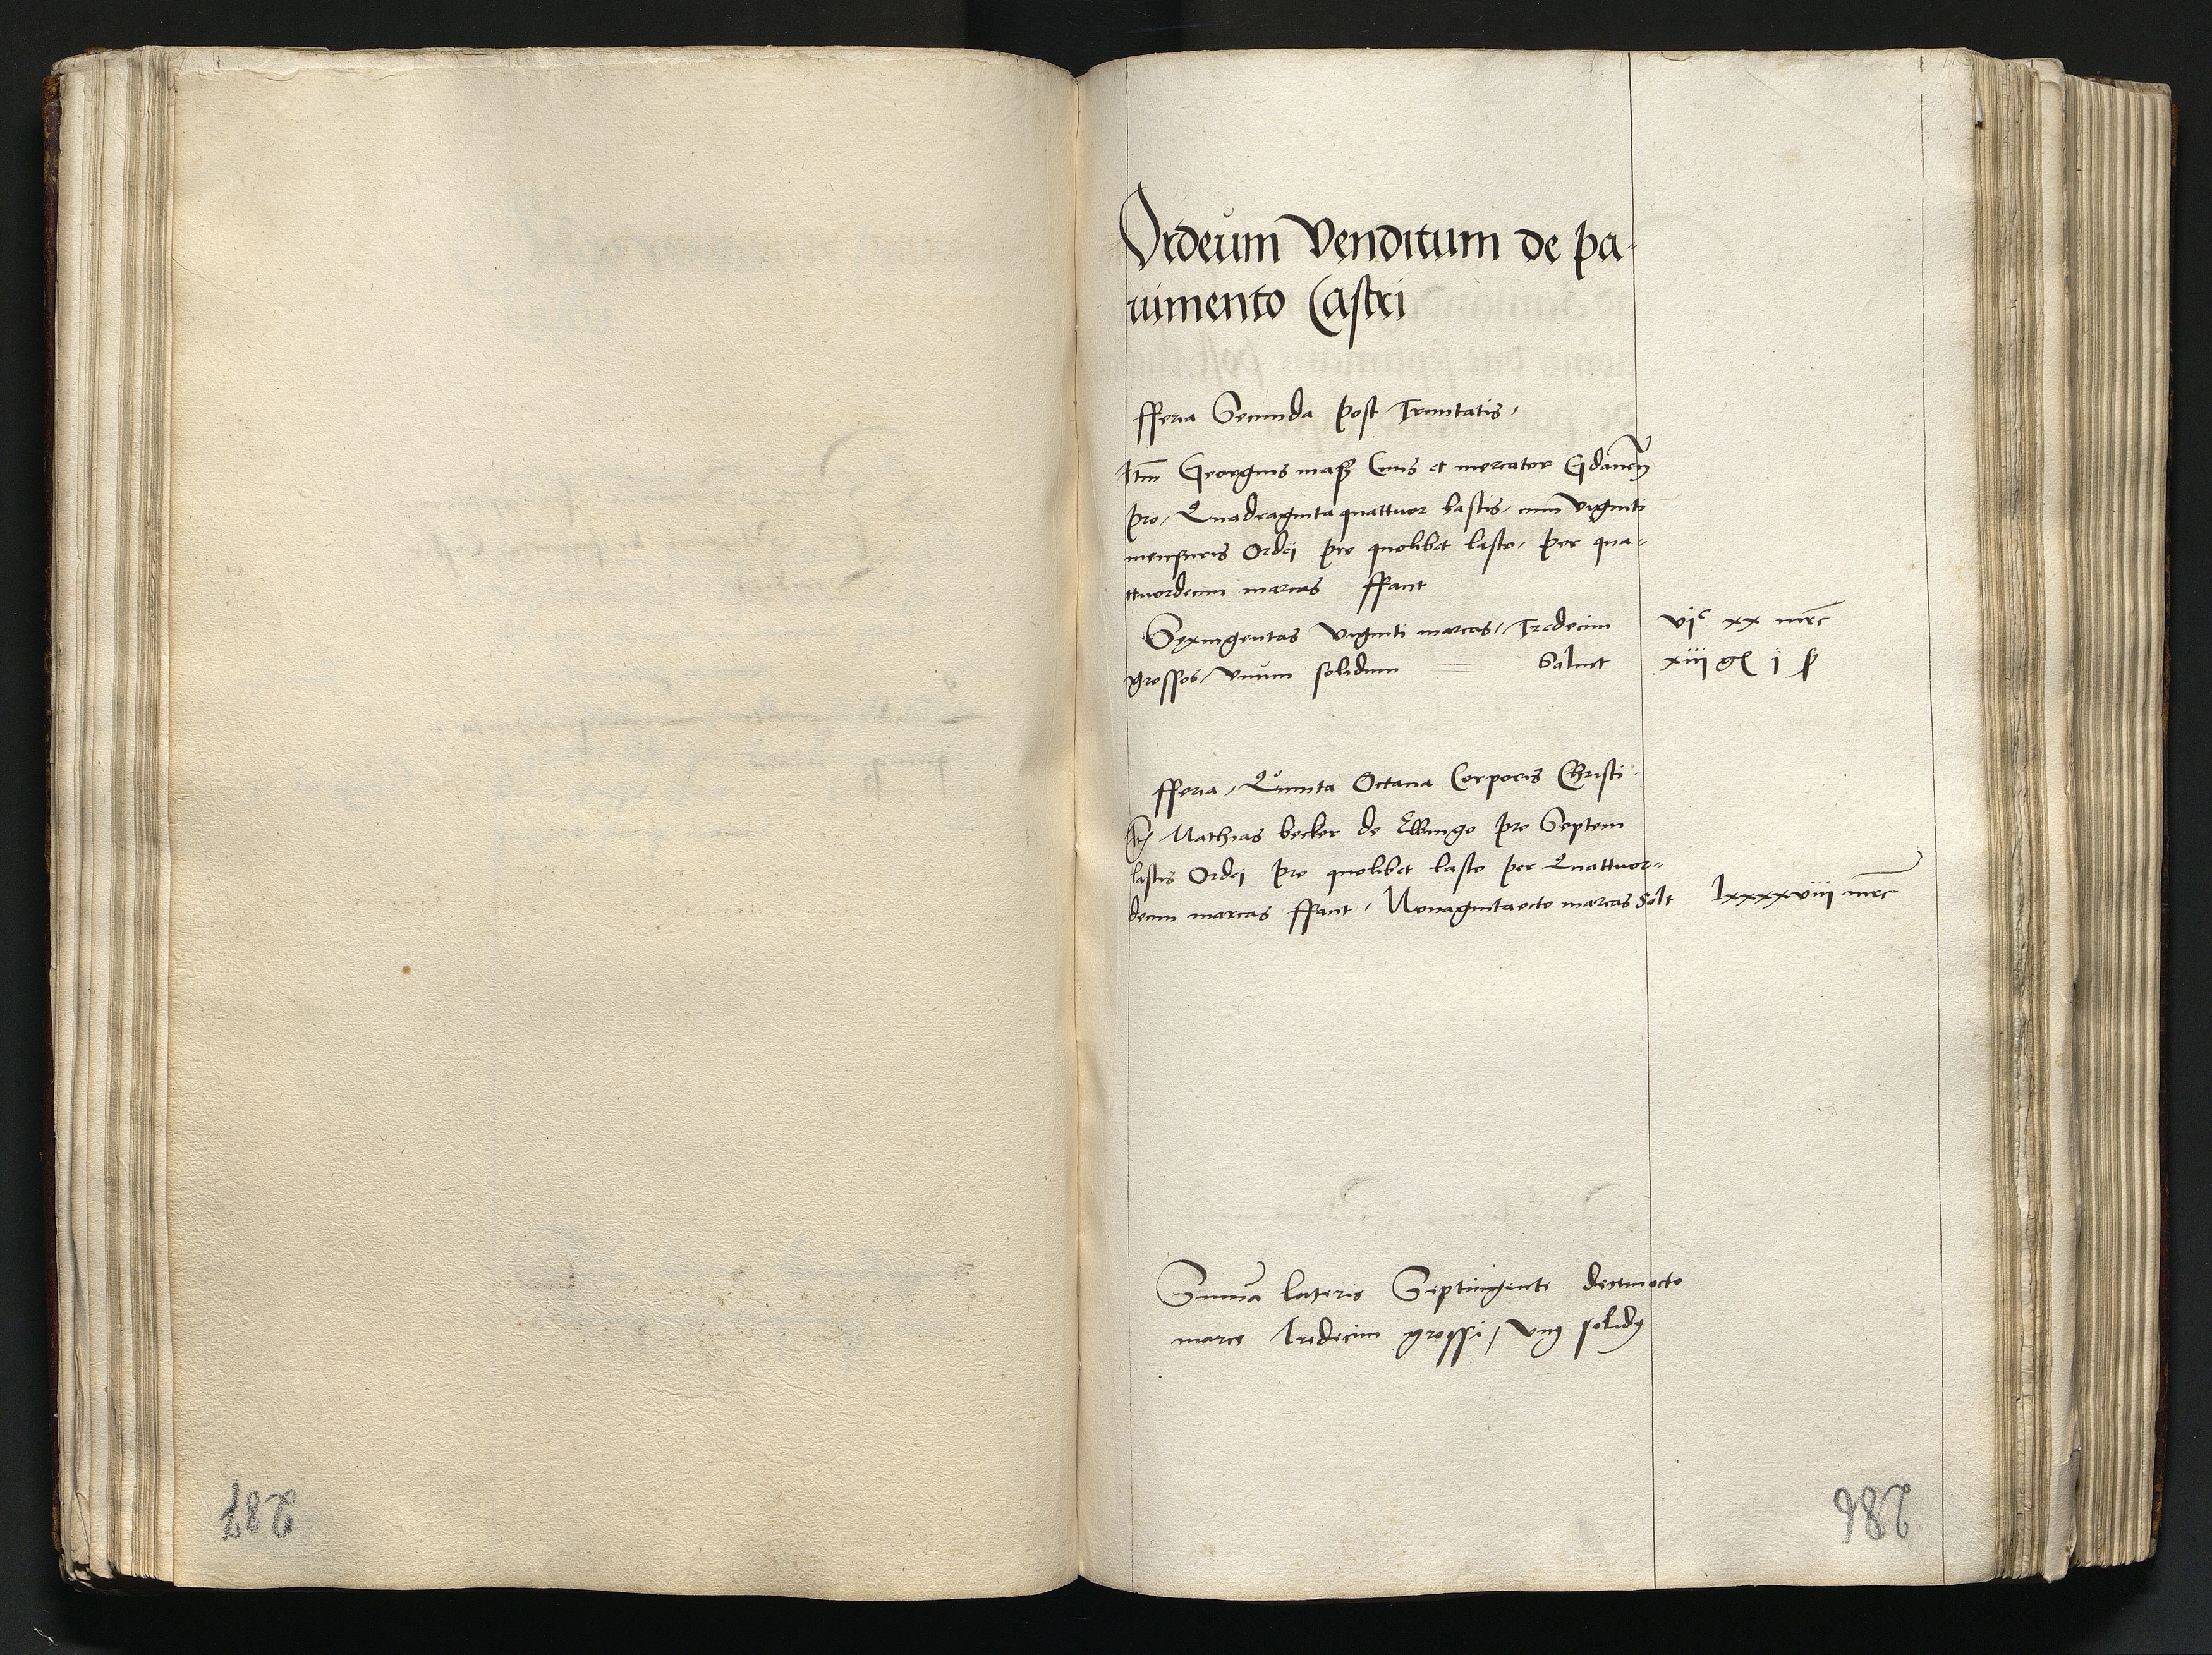 Ordeum Venditum de pa-
uimento Castri
fferia Secunda post Trinitatis,
Itm Georgius Ciuis et mercator Gdanen
pro, Quadraginta quattuor lastis, cum viginti
mensuris Ordej pro quolibet lasto, per qua-
ttuordecim marcas ffacit
Sexingentas viginti marcas, Tredecim
vjc xx mrc
grossos, vnum solidum Soluit
xiij gr j ß
fferia, Quinta Octaua Corporis Christi
It Mathias becker de Elbingo pro Septem
lastis Ordej pro quolibet lasto per Quattuor-
decim marcas ffacit, Nonagintaocto marcas Solt
lxxxxviij mrc
Summa lateris Septingente decimocto
marce Tredecim grossi, vnus solidus
287
286